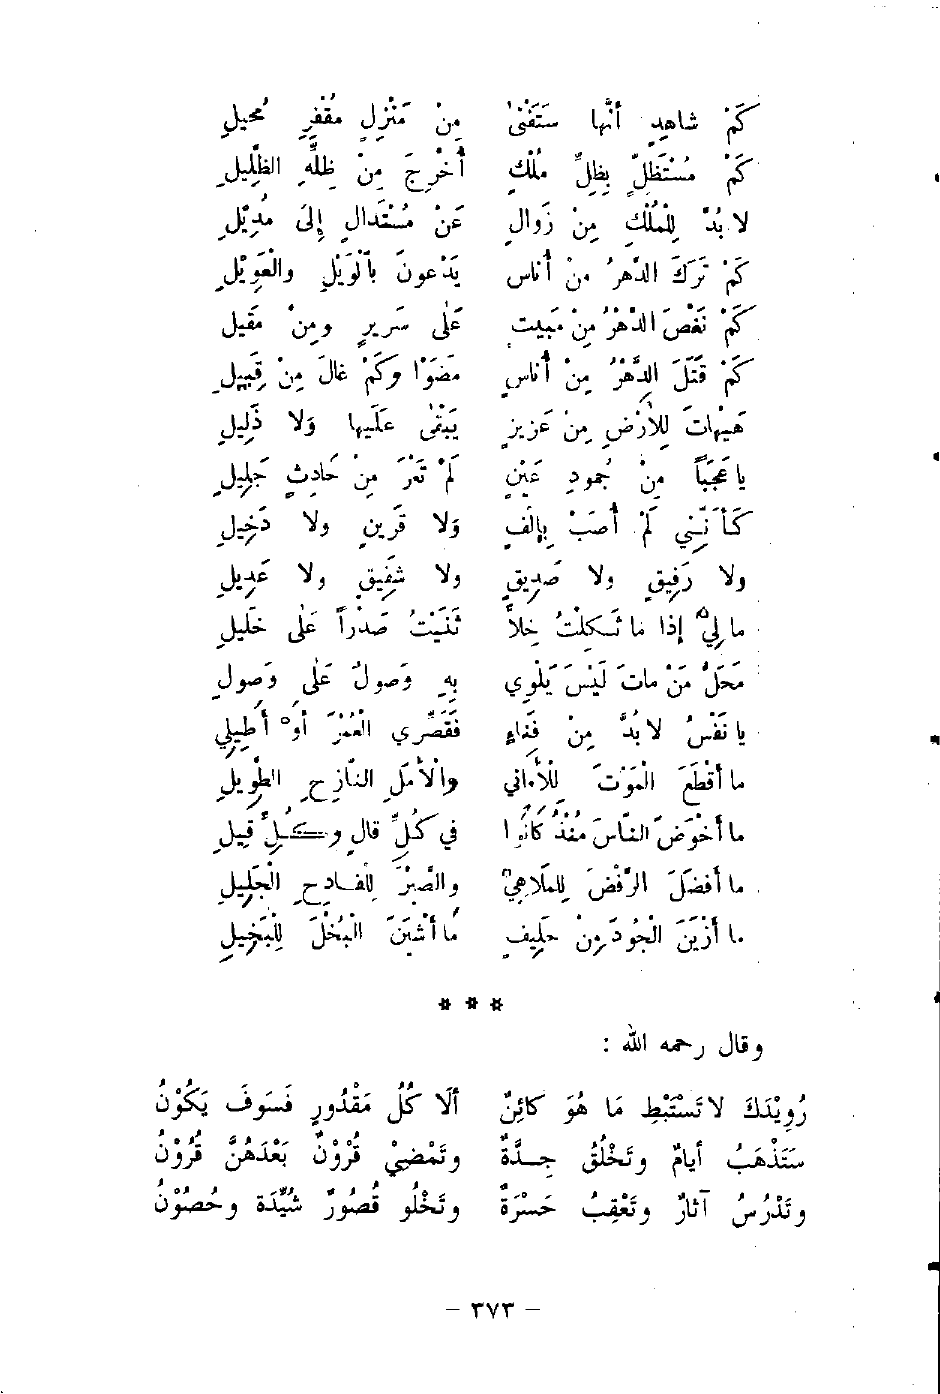 كَمْ شاهِدٍ أنَّها سَتَفْنىٰ مِنْ مَنْزِلٍ مُقْفِرٍ مُحيلِ
كَمْ مُسْتَظِلٍّ بِظِلِّ مُلْكٍ أُخْرِجَ مِنْ ظِلِّهِ الظَّلِيلِ
لا بُدَّ لِلْمُلْكِ مِنْ زَوالٍ عَنْ مُسْتَدالٍ إِلىَ مُدِيْلِ
كَمْ تَرَكَ الدَّهرُ منْ أُناس يَدْعونَ بألْوَيْلِ والْعَوِيْلِ
كَمْ نَغَّصَ الدَّهْرُ مِنْ مَبِيت عَلٰى سَريرٍ ومِنْ مَقيل
كَمْ قَتَلَ الدَّهْرُ مِنْ أُناسٍ مَضَوْا وكَمْ غالَ مِنْ قَبِيلِ
هَيْهاتَ لِلأرْضِ مِنْ عَزيزٍ يَبْقىٰ عَلَيها وَلا ذَلِيلِ
يا عَجَباً مِنْ جُمودِ عَيْنٍ لَمْ تَعْرَ مِنْ حَادِثٍ جَلِيلِ
كَأَنَّنِي لَمْ أُصَبْ بِإلْفٍ وَلا قَرينٍ ولا دَخِيلِ
ولا رَفِيقٍ ولا صَدِيقٍ ولا شَفِيقٍ ولا عَدِيلِ
ما لِي إذا ما ثَكِلْتُ خِلاًّ ثَنَيْتُ صَدْراً عَلٰى خَليلِ
مَحَلُّ مَنْ ماتَ لَيْسَ يَلْوِي بِهِ وَصولٌ عَلىٰ وَصولِ
يا نَفْسُ لا بُدَّ مِنْ فَناءٍ فَقَصِّري الْعُمْرَ أوْ أَطِيلِي
ما أقْطَعَ الْمَوْتَ لِلْأَماني والْأَمَلِ النّازِحِ الطَّوِيلِ
ما أخْوَضَ النّاسَ مُنْذُ كَانُوا في كُلِّ قالٍ وكُلِّ قِيلِ
ما أفضَلَ الرَّفْضَ لِلملاهِيْ والصَّبْرَ لِلفادِحِ الْجَلِيلِ
ما أزْيَنَ الْجُودَ مِنْ حَلِيفٍ ما أشْيَنَ البُخْلَ لِلْبَخيلِ
* * *
وقال رحمه الله :
رُوِيْدَكَ لا تَسْتَبْطِ مَا هُوَ كائِنٌ ألَا كُلُ مَقْدُورٍ فَسَوفَ يَكُوْنُ
سَتَذْهَبُ أيامٌ وتَخْلُقُ جِدَّةٌ وتَمْضِيْ قُرُوْنٌ بَعْدَهُنَّ قُرُوْنُ
وتَدْرُسُ آثارٌ وتَعْقِبُ حَسْرَةٌ وتَخْلُو قُصُورٌ شُيِّدَة وحُصُوْنُ
– ٣٧٣ –